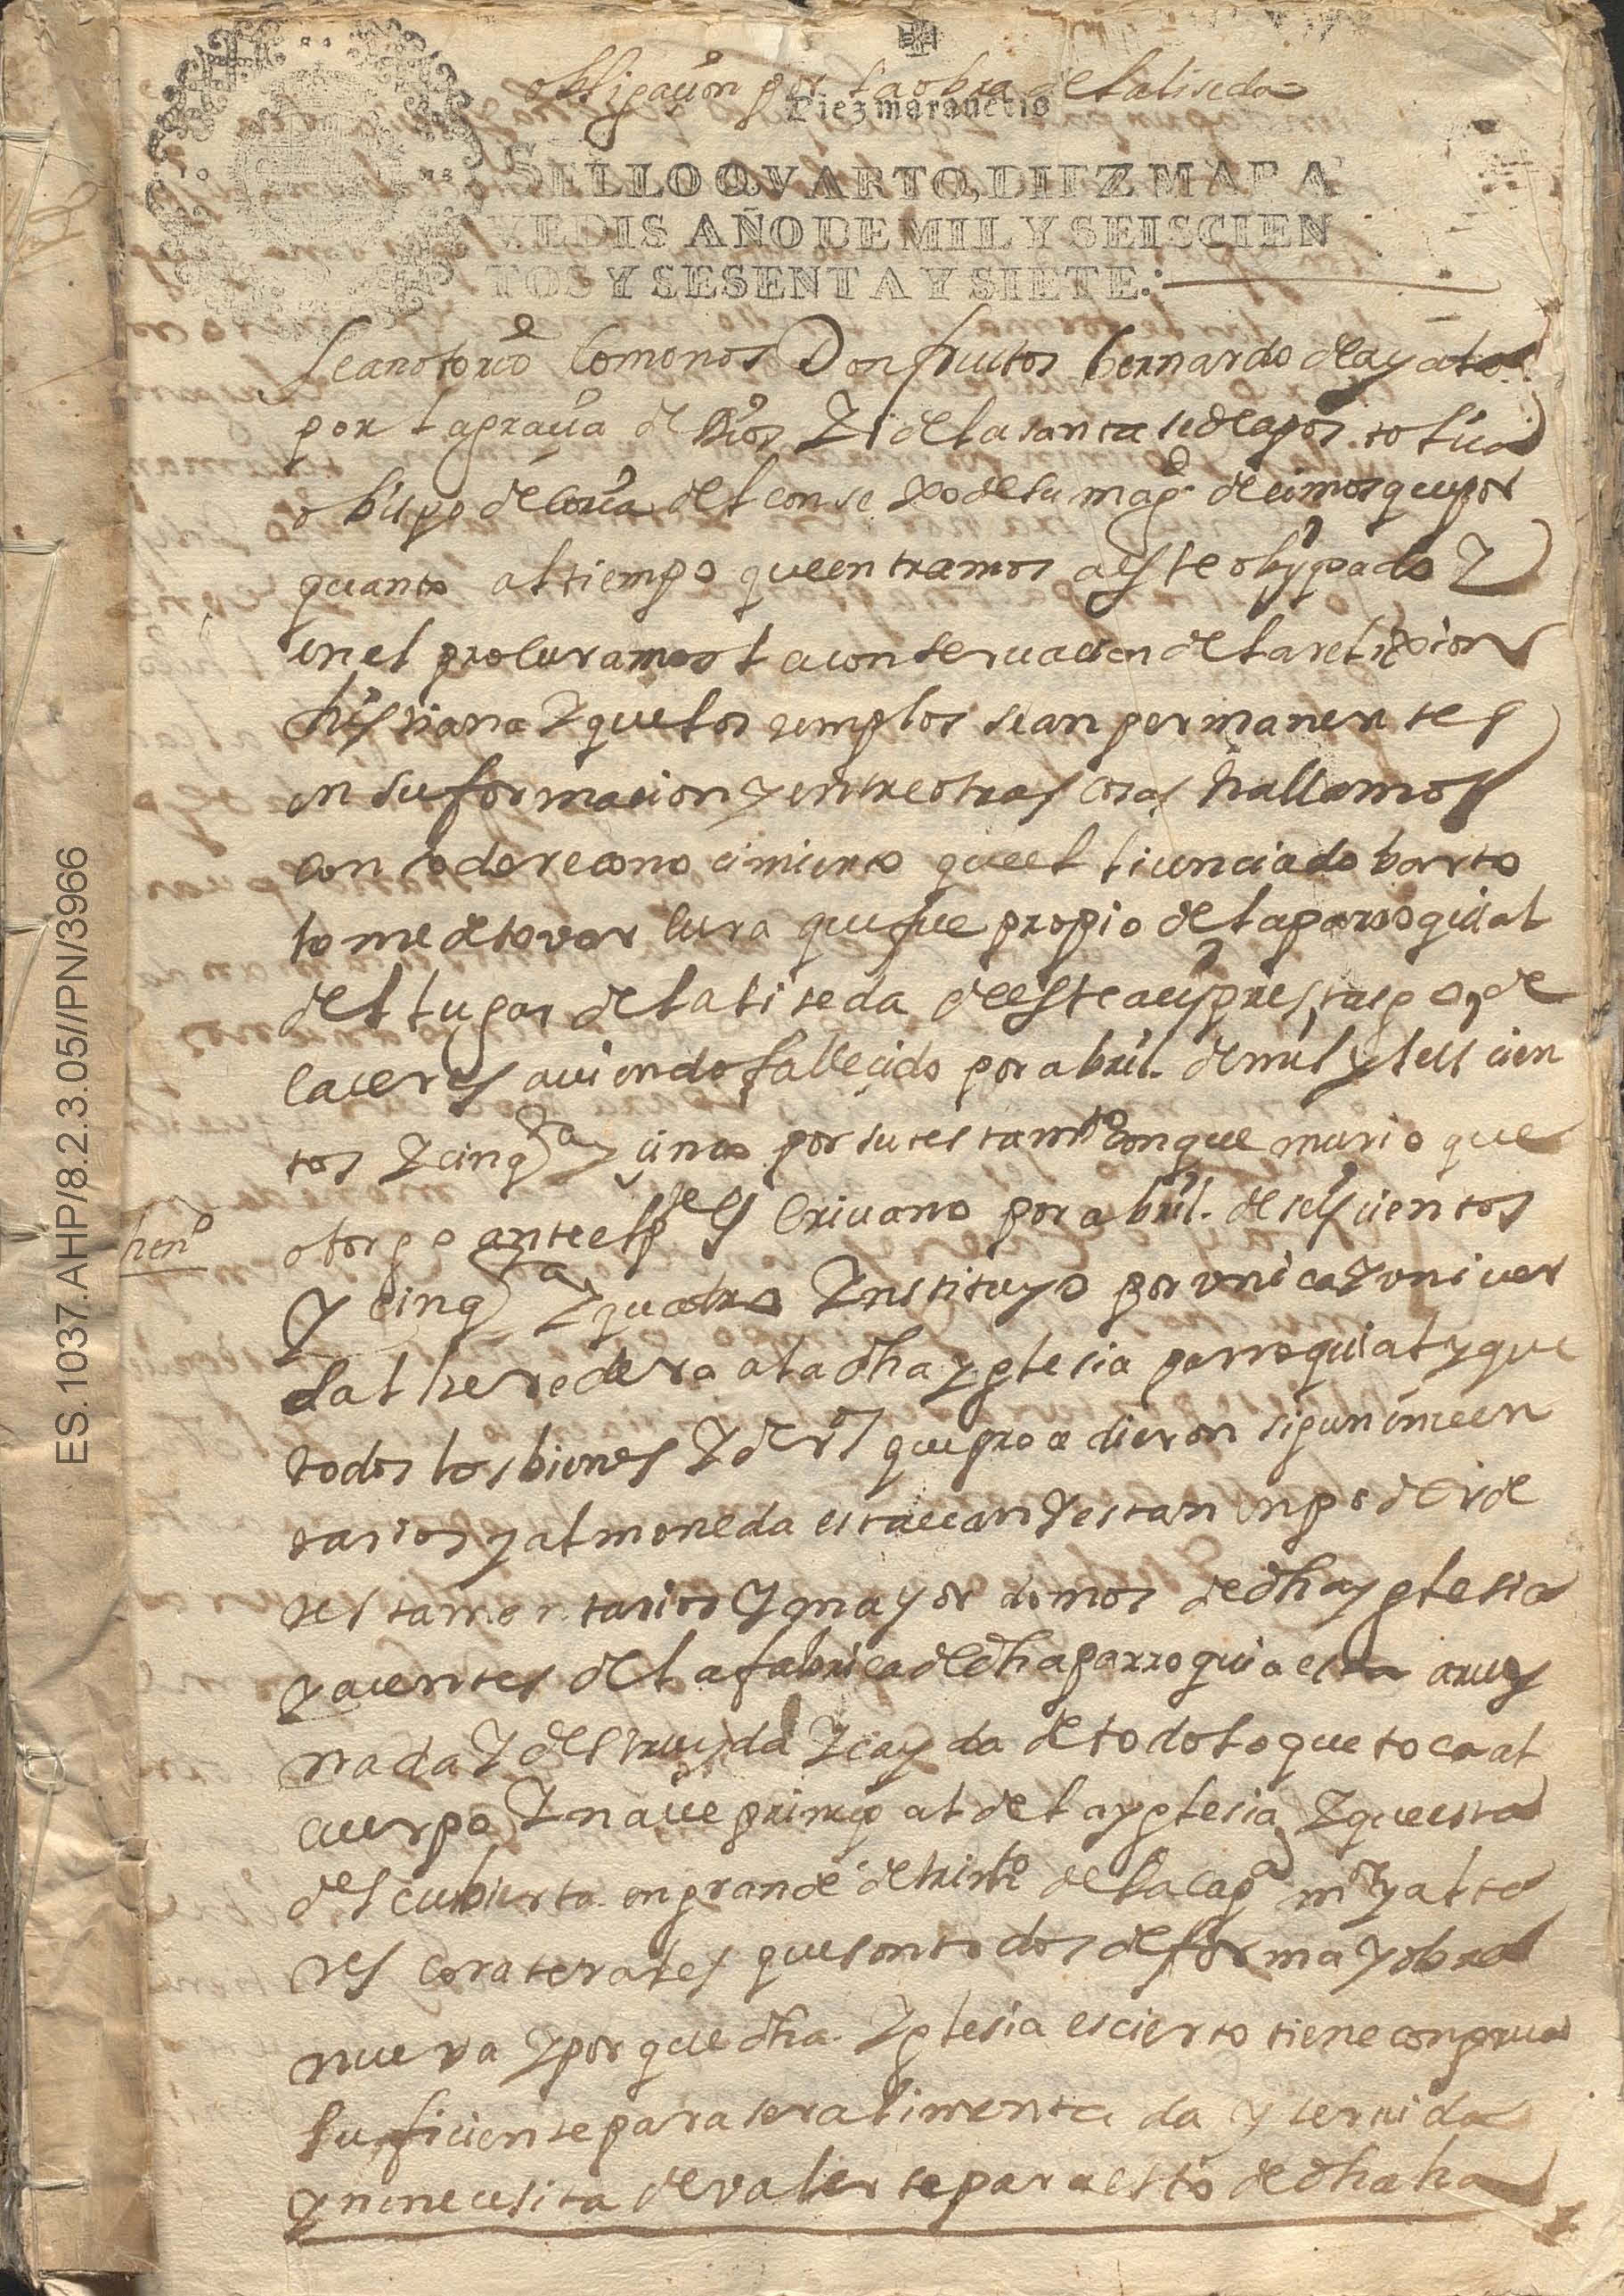 obligaçion por la obra de la liseda
Diez marauedis
SELLO QVARTO, DIEZ MARA
VEDIS AÑO DE MIL Y SEISCIEN
TOS Y SESENTA Y SIETE:
Sea notorio Como nos Don frutos bernardo de ayala
por la graçia de Dios Y de la santa sede apostolica
obispo de Coria del consexo de su magd deçimos que por
quanto al tiempo que entramos a este obispado Y
en el procuramos la conseruaçion de la relixion
christiana Y que los templos sean permanentes
en su formacion y entre otras cosas hallamos
con todo reconocimiento que el licenciado barto
lome de tovar Cura que fue propio de la parroquial
del lugar de la liseda de este arçiprestasgo de
caceres auiendo falleçido por abril de mil y seis cien
tos Y cinqta y çinco por su testamto con que murio que
otorgo ante el pste Escriuano por abril de seiscientos
Y cinqta Y quatro Ynstituyo por vnica Y vniver
sal heredera a la dha yglesia parroquial y que
todos los bienes Y der.os que proçedieron sigun inuen
tarios y almoneda estauan Y estan en poder de
testamentarios Y mayordomos de dha yglesia
Y a uentes de la fabrica de dha parroquia esta aruy
nada Y destruyda Y cayda de todo lo que toca al
cuerpo Y naue prinçipal de la yglesia Y que esta
descubierta en grande detrimto de la capa mor y alta
res coraterales que son todos de forma y obra
nueva Y por que dha Yglesia es cierto tiene congrua
suficiente para ser alimentada y seruida
Y no necesita de valerse para esto de dha ha
hen.o
ES.1037.AHP/8.2.3.05//PN/3966